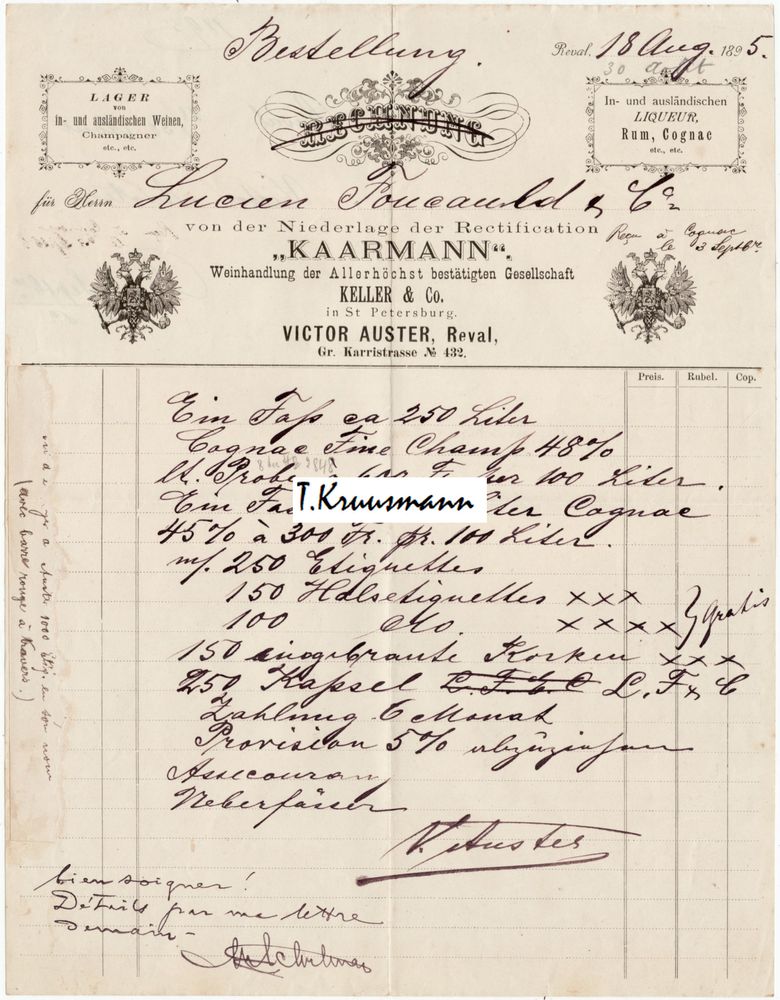 Bestellung.
Reval. 18 Aug. 1895.
30 août
LAGER
von
in- und ausländischen Weinen,
Champagner
etc., etc.
RECHNUNG
In- und ausländischen
LIQUEUR,
Rum, Cognac
etc., etc.
für Herrn Lucien Foucauld & Co
von der Niederlage der Rectification
Reçu à Cognac
le 3 Septbre
„KAARMANN“.
Weinhandlung der Allerhöchst bestätigten Gesellschaft
KELLER & Co.
in St Petersburg.
VICTOR AUSTER, Reval,
Gr. Karristrasse № 432.
Preis. Rubel. Cop.
Ein Faß ca 250 Liter
Cognac Fine Champ. 48%
lt. Probe 100 Liter.
T.Kruusmann
Ein Cognac
45% à 300 Fr. pr. 100 Liter.
m/. 250 Etiquettes
150 Halsetiquettes ×××
100 do. ×××× } gratis
150 eingebrannte Korken ×××
250 Kapsel L. F. & C L. F & C
Zahlung 6 Monat
Provision 5% abzüziehen
Assecouranz
Ueberfässer
V. Auster
à Auster 1000 Etiq. en son nom
(avec barre rouge à travers.)
bien soigner!
Détails par ma lettre
demain -